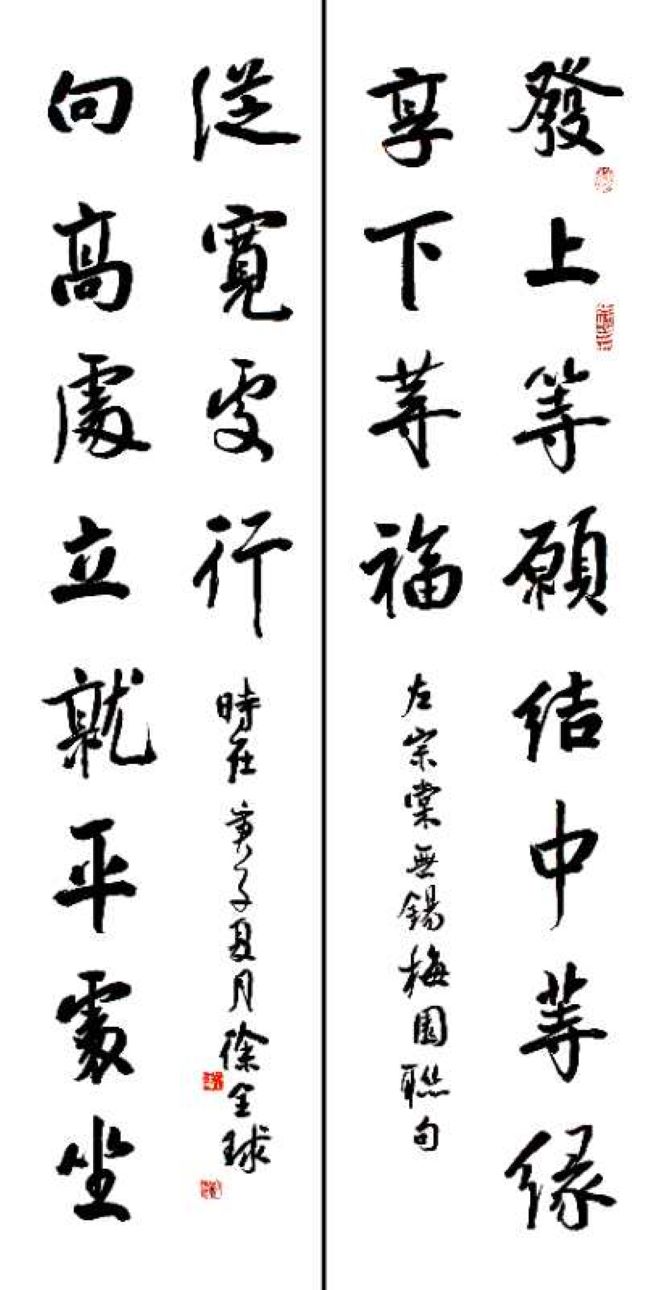 發上等願結中等緣
享下等福
左宗棠無錫梅園聯句
向高處立就平處坐
從寬處行
時在庚子月徐全球